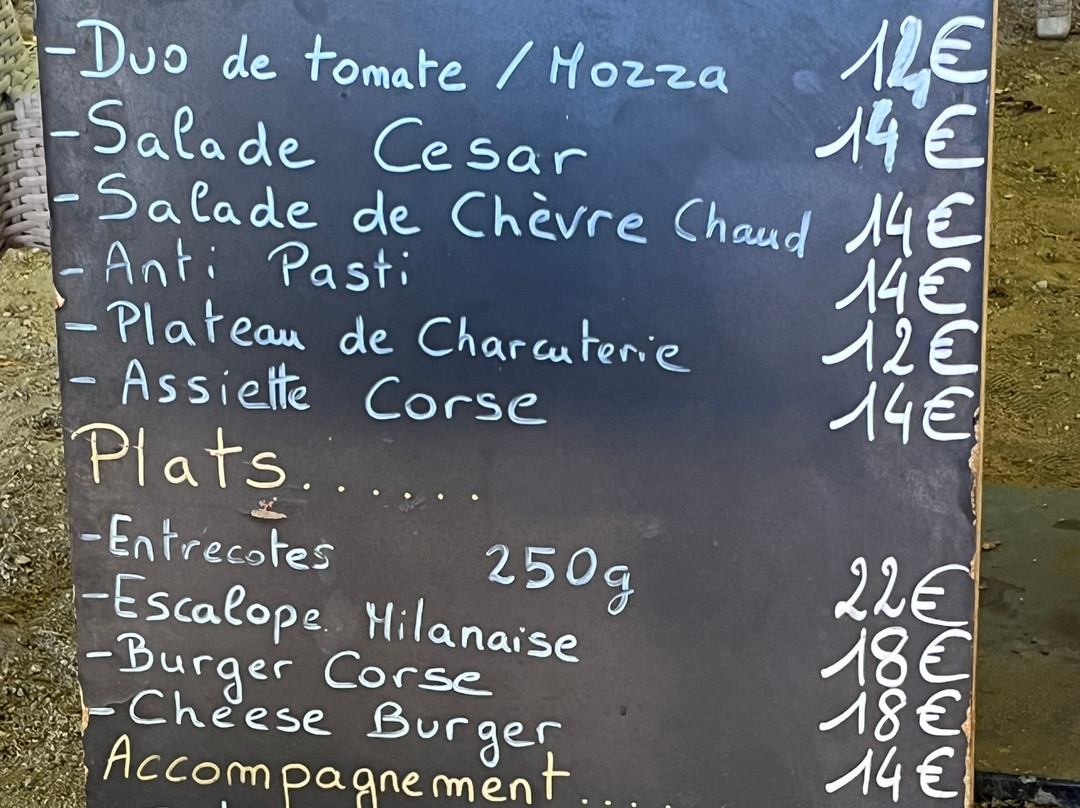 - Duo de tomate / Mozza 12€
- Salade Cesar 14€
- Salade de Chèvre Chaud 14€
- Anti Pasti 14€
- Plateau de Charcuterie 12€
- Assiette Corse 14€
Plats......
- Entrecotes 250g 22€
- Escalope Milanaise 18€
- Burger Corse 18€
- Cheese Burger 14€
Accompagnement....